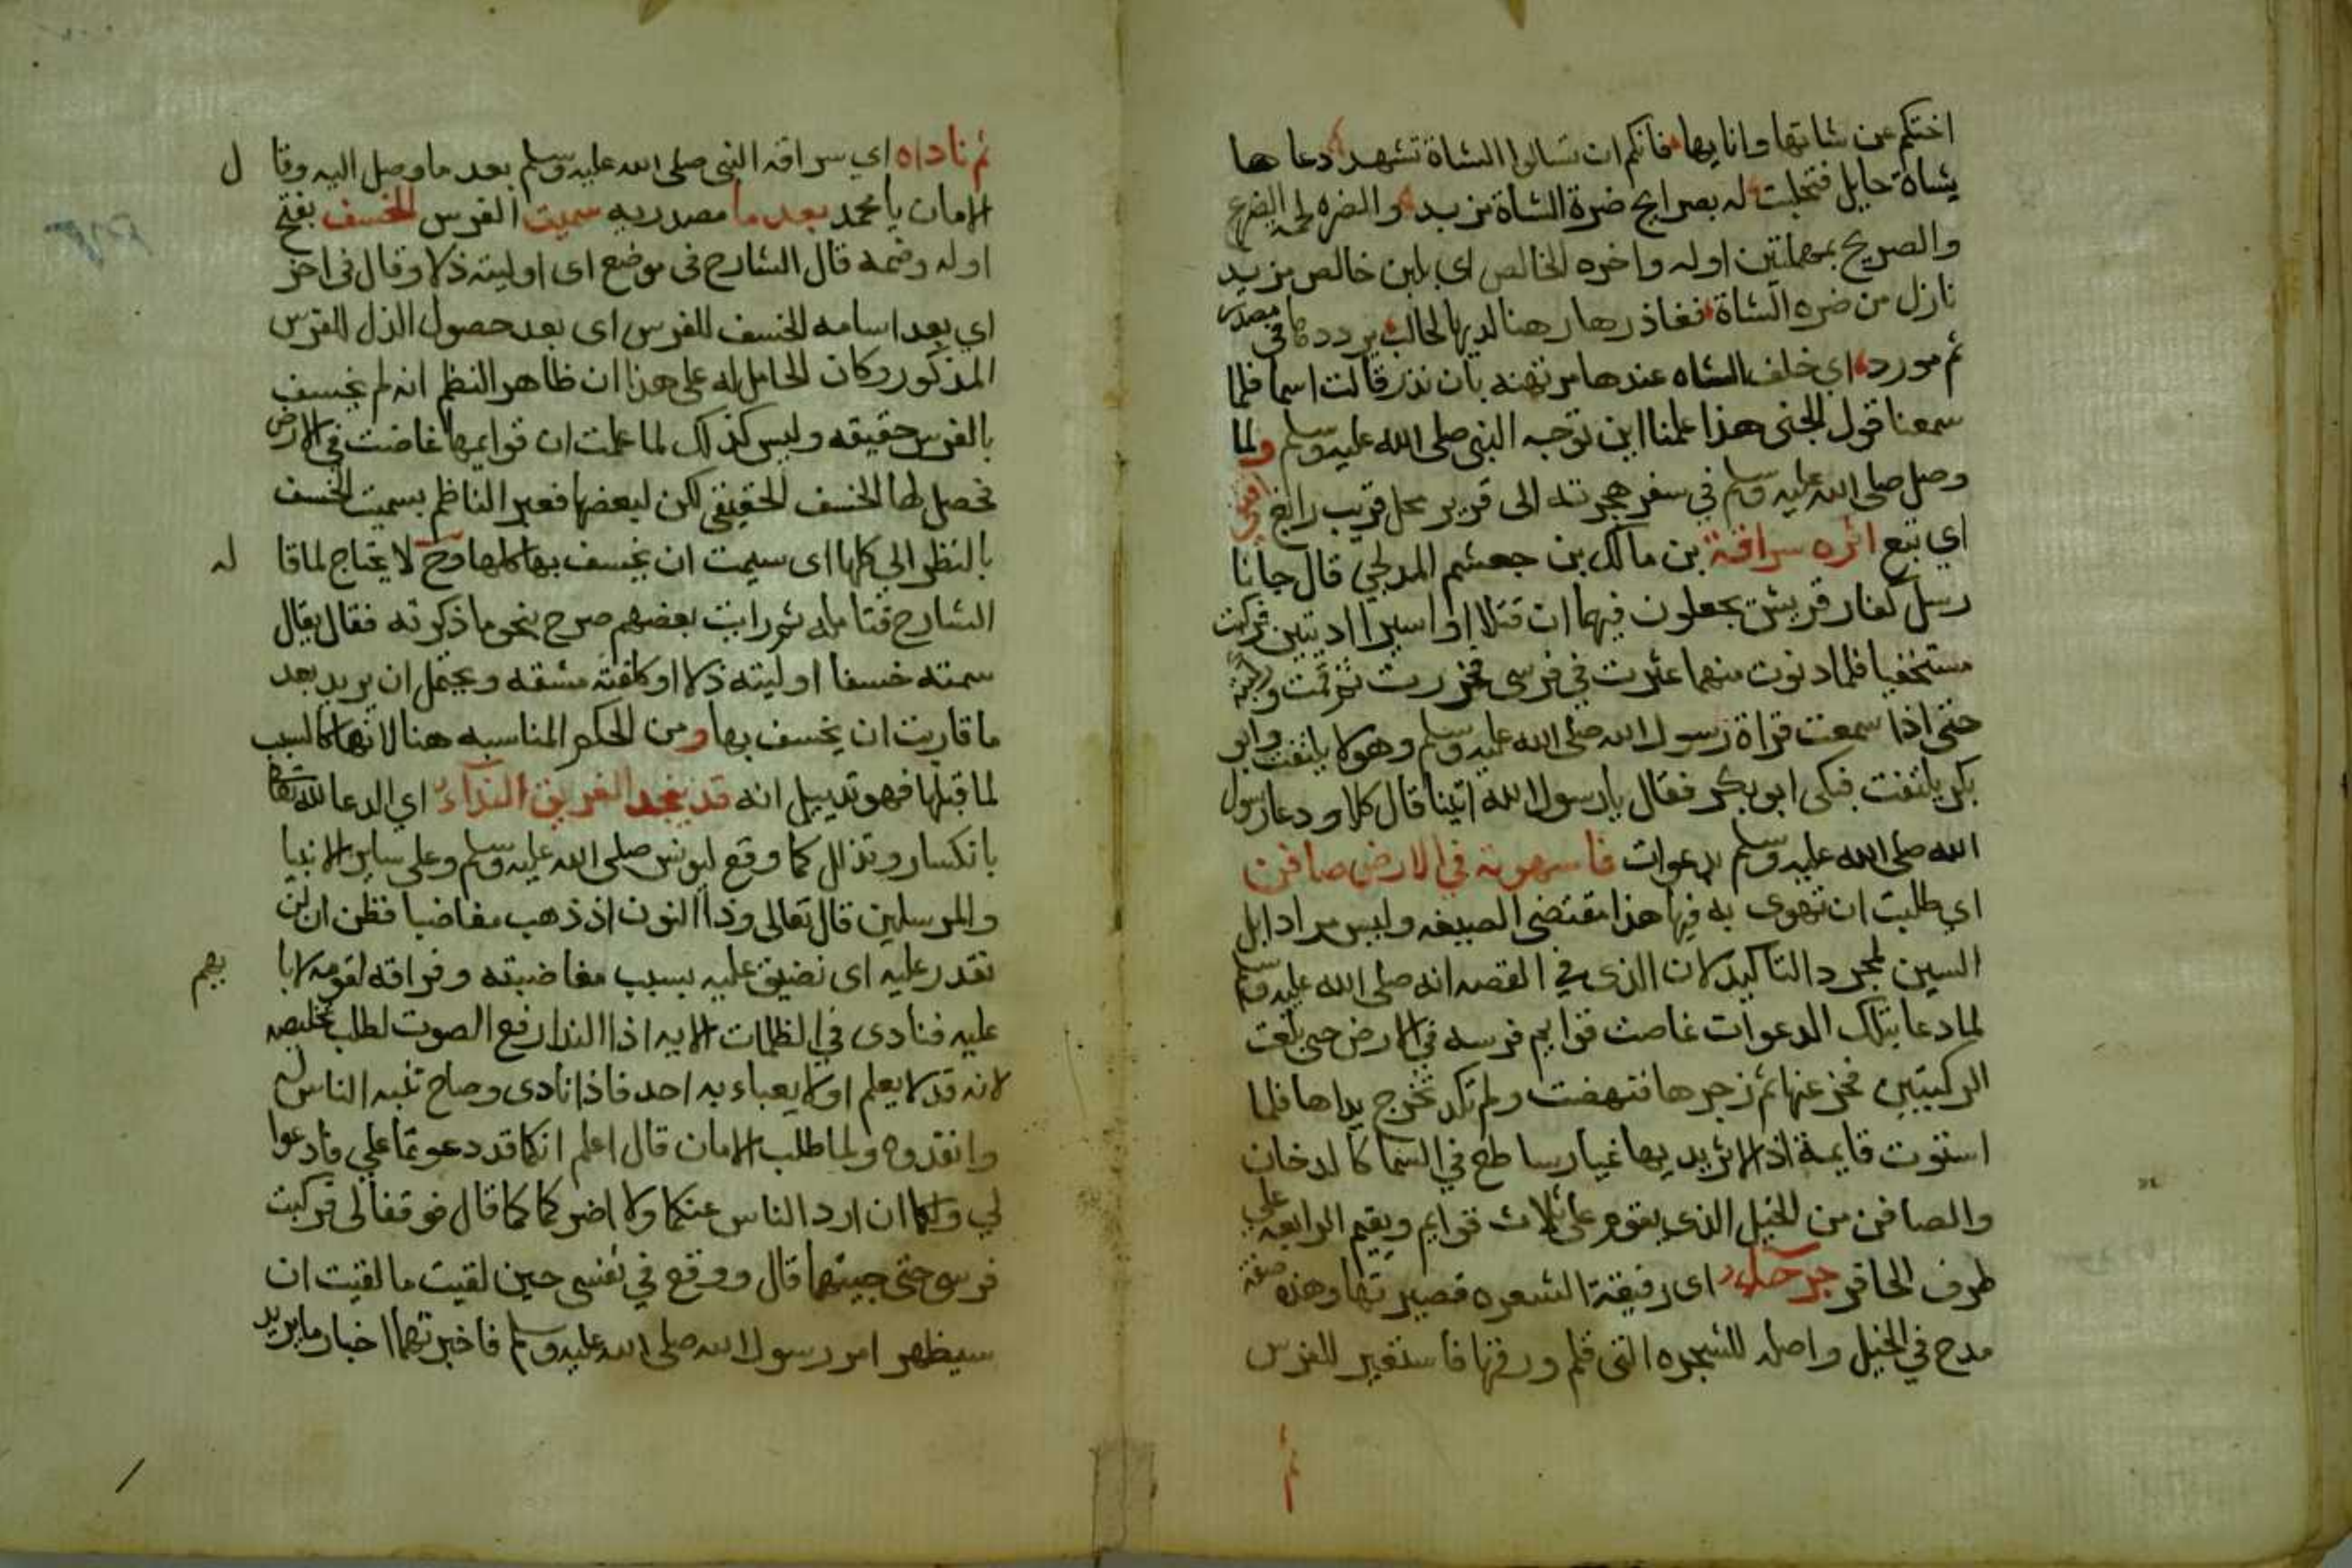 اختكم عن شاتها وانايها فانكم ان تسالوا الشاة تشهد دعاها
بشاة حايل فتحلبت له بصرايح ضرة الشاة مزبد والضره لحمة الضرع
والصريح بمهملتين اوله واخره الخالص اي بلبن خالص مزبد
نازل من ضره الشاة فغاذرها رهنا لديها لحالب يرددها في مصدر
ثم مورد اي خلف الشاه عندها مرتهنه بان تذر قالت اسما فلما
سمعنا قول الجني هذا علمنا اين توجه النبي صلى الله عليه وسلم ولما
وصل صلى الله عليه وسلم في سفر هجرته الى قرير محل قريب رابغ اقتفى
اي تبع اثره سراقة بن مالك بن جعشم المدلجي قال جانا
رسل كفار قريش يجعلون فيهما ان قتلا او اسيرا ديتين فركبت
مستخفيا فلما دنوت منهما عثرت في فرسى فخررت ثم قمت وركبته
حتى اذا سمعت قراة رسول الله صلى الله عليه وسلم وهو لا يلتفت وابو
بكر يلتفت فبكى ابو بكر فقال يا رسول الله اتينا قال كلا ودعا رسول
الله صلى الله عليه وسلم بدعوات فاستهوته في الارض صافن
اي طلبت ان تهوى به فيها هذا مقتضى الصيغه وليس مرادا بل
السين لمجرد التاكيد لان الذي في القصه انه صلى الله عليه وسلم
لما دعا بتلك الدعوات غاصت قوايم فرسه في الارض حتى بلغت
الركبتين فخر عنها ثم زجرها فنهضت ولم تكد تخرج يداها فلما
استوت قايمة اذ لاثر يديها غبار ساطع في السما كالدخان
والصافن من الخيل الذي يقوم على ثلاث قوايم ويقيم الرابعه على
طرف الحافر جرداء اي رقيقة الشعره قصيرتها وهذه صفة
مدح في الخيل واصله للشجره التي قلم ورقها فاستعير للفرس
ثم
ثم ناداه اي سراقه النبي صلى الله عليه وسلم بعد ما وصل اليه وقال
الامان يا محمد بعد ما مصدريه سميت الفرس الخسف بفتح
اوله وضمه قال الشارح في موضع اى اوليته ذلا وقال في اخر
اي بعد اسامه الخسف للفرس اى بعد حصول الذل للفرس
المذكور وكان الحامل له على هذا ان ظاهر النظم انه لم يخسف
بالفرس حقيقه وليس كذلك لما علمت ان قوايمها غاصت في الارض
فحصل لها الخسف الحقيقي لكن لبعضها فعبر الناظم بسميت الخسف
بالنظر الى كلها اى سيمت ان يخسف بها كلها وح لا يحتاج لما قاله
الشارح فتامله ثم رايت بعضهم صرح بنحو ما ذكرته فقال يقال
سمته خسفا اوليته ذلا او كلفته مشقه ويحتمل ان يريد بعد
ما قاربت ان يخسف بها ومن الحكم المناسبه هنا لانها كالسبب
لما قبلها فهو تذييل انه قد ينجد الغريق النداء اي الدعا لله تعالى
بانكسار وتذلل كما وقع ليونس صلى الله عليه وسلم وعلى ساير الانبيا
والمرسلين قال تعالى وذا النون اذ ذهب مغاضبا فظن ان لن
نقدر عليه اى نضيق عليه بسبب مغاضبته وفراقه لقومه لابايهم
عليه فنادى في الظلمات الايه اذا الندا رفع الصوت لطلب تخليصه
لانه قد لا يعلم او لا يعباء به احد فاذا نادى وصاح تنبه الناس له
وانقذوه ولما طلب الامان قال اعلم انكما قد دعوتما علي فادعوا
لي ولكما ان ارد الناس عنكما ولا اضركما كما قال فوقفا لى فركبت
فرسى حتى جيتهما قال ووقع في نفسي حين لقيت ما لقيت ان
سيظهر امر رسول الله صلى الله عليه وسلم فاخبرتهما اخبار ما يريد